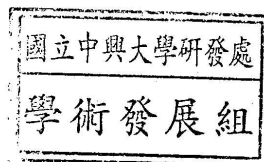 國立中興大學研發處
學術發展組